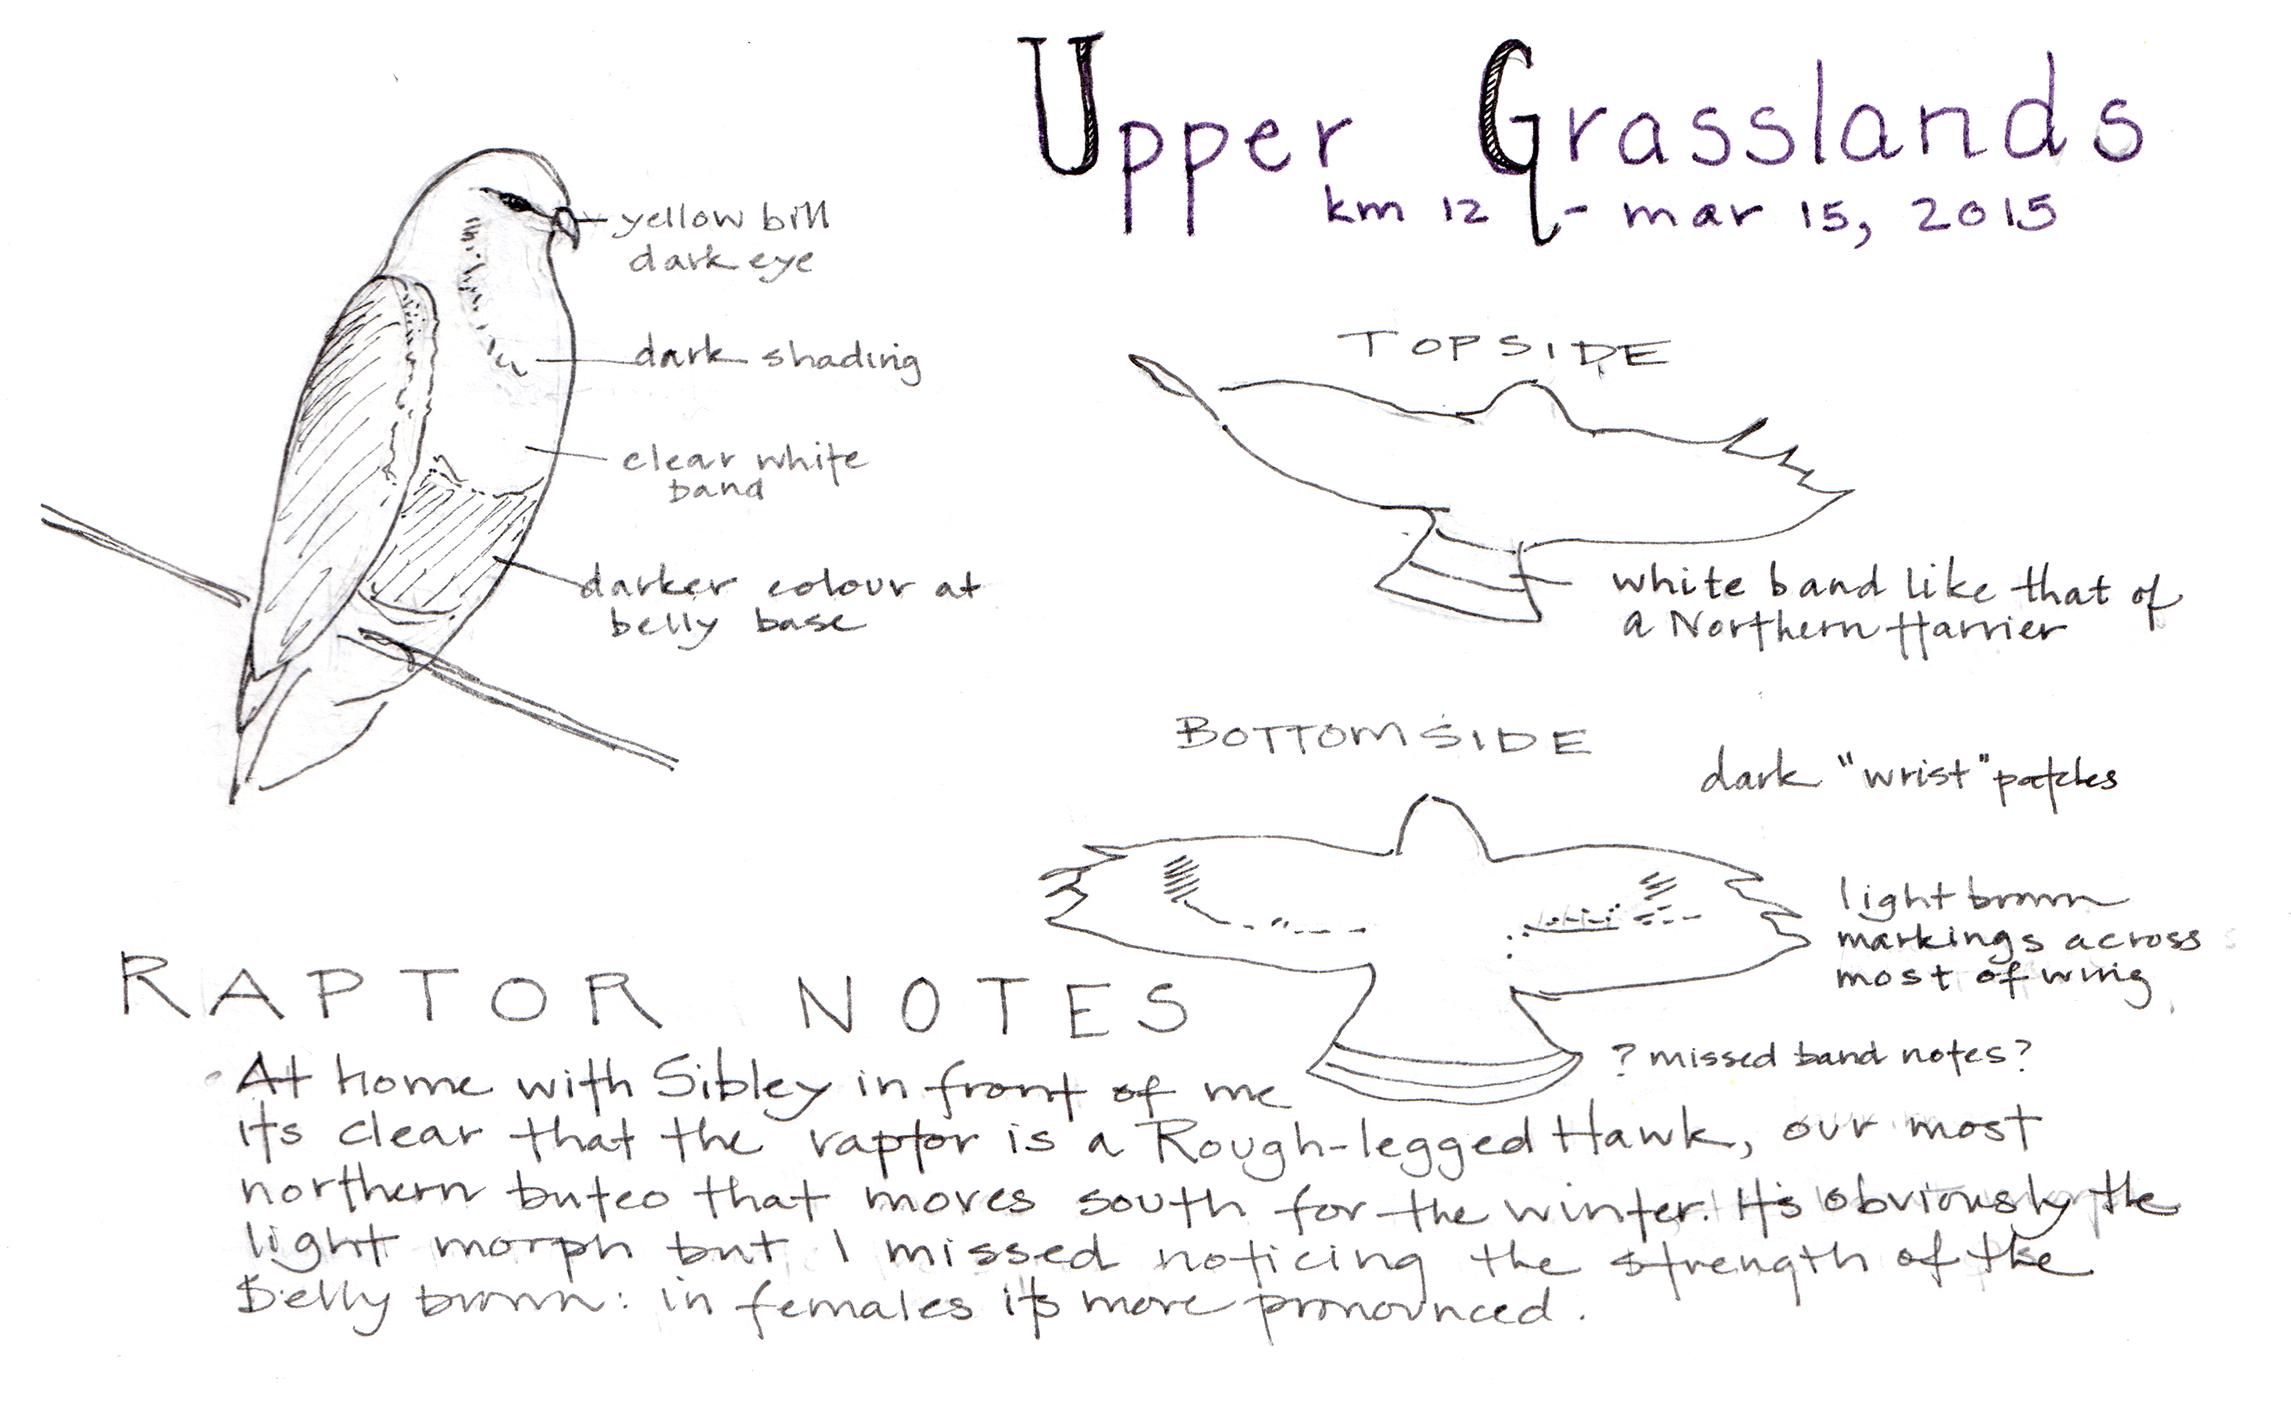 Upper Grasslands
km 12 - mar 15, 2015
yellow bill
dark eye
dark shading
clear white
band
darker colour at
belly base
TOPSIDE
white band like that of
a Northern Harrier
BOTTOMSIDE
dark "wrist" patches
light brown
markings across
most of wing
? missed band notes?
RAPTOR NOTES
At home with Sibley in front of me
its clear that the raptor is a Rough-legged Hawk, our most
northern buteo that moves south for the winter. It's obviously the
light morph but I missed noticing the strength of the
belly brown: in females it's more pronounced.